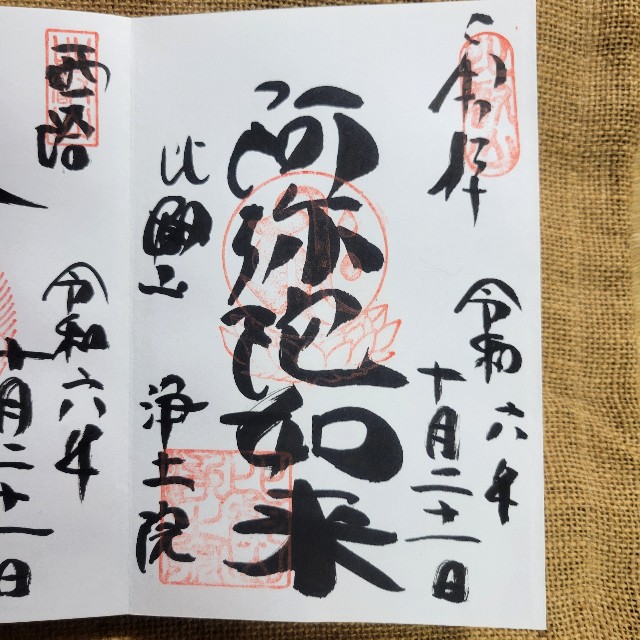 奉拝
令和六年
十月二十一日
阿弥陀如来
比叡山 浄土院
西塔
令和六年
十月二十一日